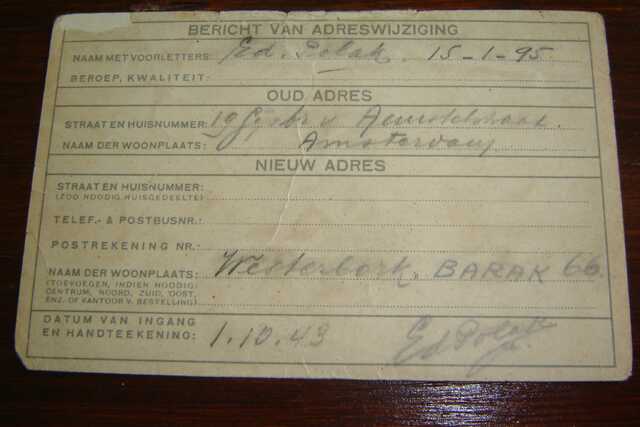 BERICHT VAN ADRESWIJZIGING
NAAM MET VOORLETTERS: Ed. Polak. 15-1-95.
BEROEP, KWALITEIT:
OUD ADRES
STRAAT EN HUISNUMMER: Amstelstraat.
NAAM DER WOONPLAATS: Amsterdam
NIEUW ADRES
STRAAT EN HUISNUMMER:
(ZOO NOODIG HUISGEDEELTE)
TELEF.- & POSTBUSNR.:
POSTREKENING NR.:
NAAM DER WOONPLAATS: Westerbork. BARAK 66.
(TOEVOEGEN, INDIEN NOODIG:
CENTRUM, NOORD, ZUID, OOST,
ENZ. OF KANTOOR V. BESTELLING)
DATUM VAN INGANG
EN HANDTEEKENING: 1.10.43 Ed Polak